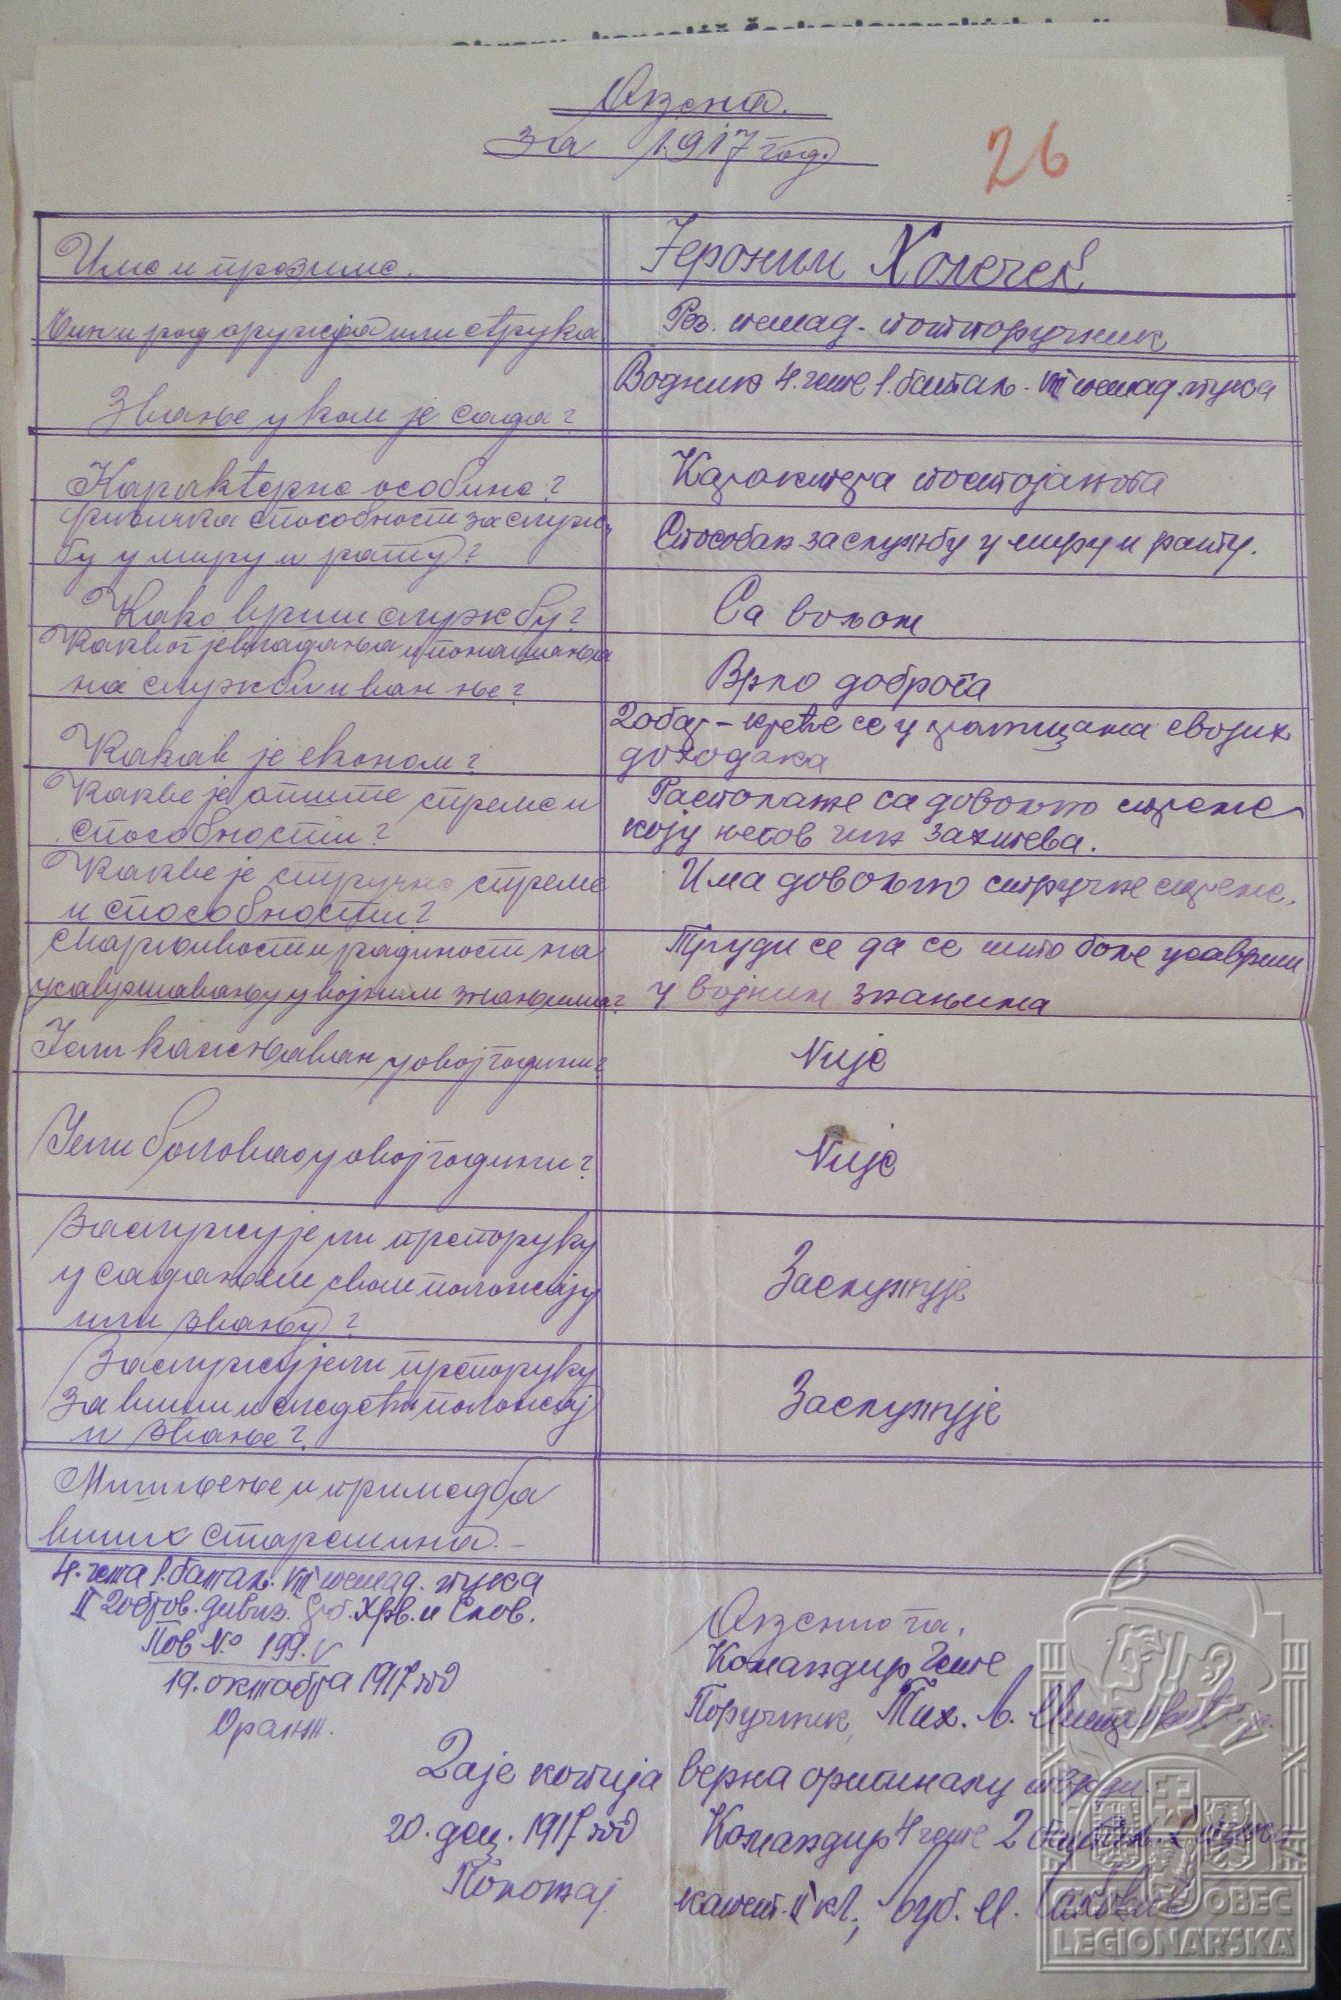 Оцена.
за 1917 год.
26
Име и презиме.
Јероним Холечек
Чин и род оружја или струка
Рез. пешад. потпоручник
Звање у ком је сада?
Водник 4. чете 1. батаљ. VIII пешад. пука
Карактерне особине?
Карактера постојанога
Физичка способност за служ-
бу у миру и рату?
Способан за службу у миру и рату.
Како врши службу?
Са вољом
Каквог је владања и понашања
на служби и ван ње?
Врло доброга
Какав је економ?
Добар - креће се у границама својих
доходака
Какве је опште спреме и
способности?
Располаже са довољно спреме
коју његов чин захтева.
Какве је стручне спреме
и способности?
Има довољно стручне спреме.
Марљивост и радиност на
усавршавању у војним знањима?
Труди се да се што боље усаврши
у војним знањима
Јели кажњаван у овој години?
Није
Јели боловао у овој години?
Није
Заслужује ли препоруку
у садањем свом положају
или звању?
Заслужује
Заслужује ли препоруку
за виши и следећи положај
и звање?
Заслужује
Мишљење и примедба
виших старешина.-
4. чета 1. батаљ. VIII пешад. пука
II Добров. дивиз. Срб. Хрв. и Слов.
Пов № 199.
19. октобра 1917 год
Оцењивач,
Командир чете
Поручник, Тих. Л.
Да је копија верна оригиналу тврди
20. дец. 1917 год
Командир 4 чете 2
Положај
капет. II кл., Љуб. М.
ČESKOSLOVENSKÁ OBEC
LEGIONÁŘSKÁ